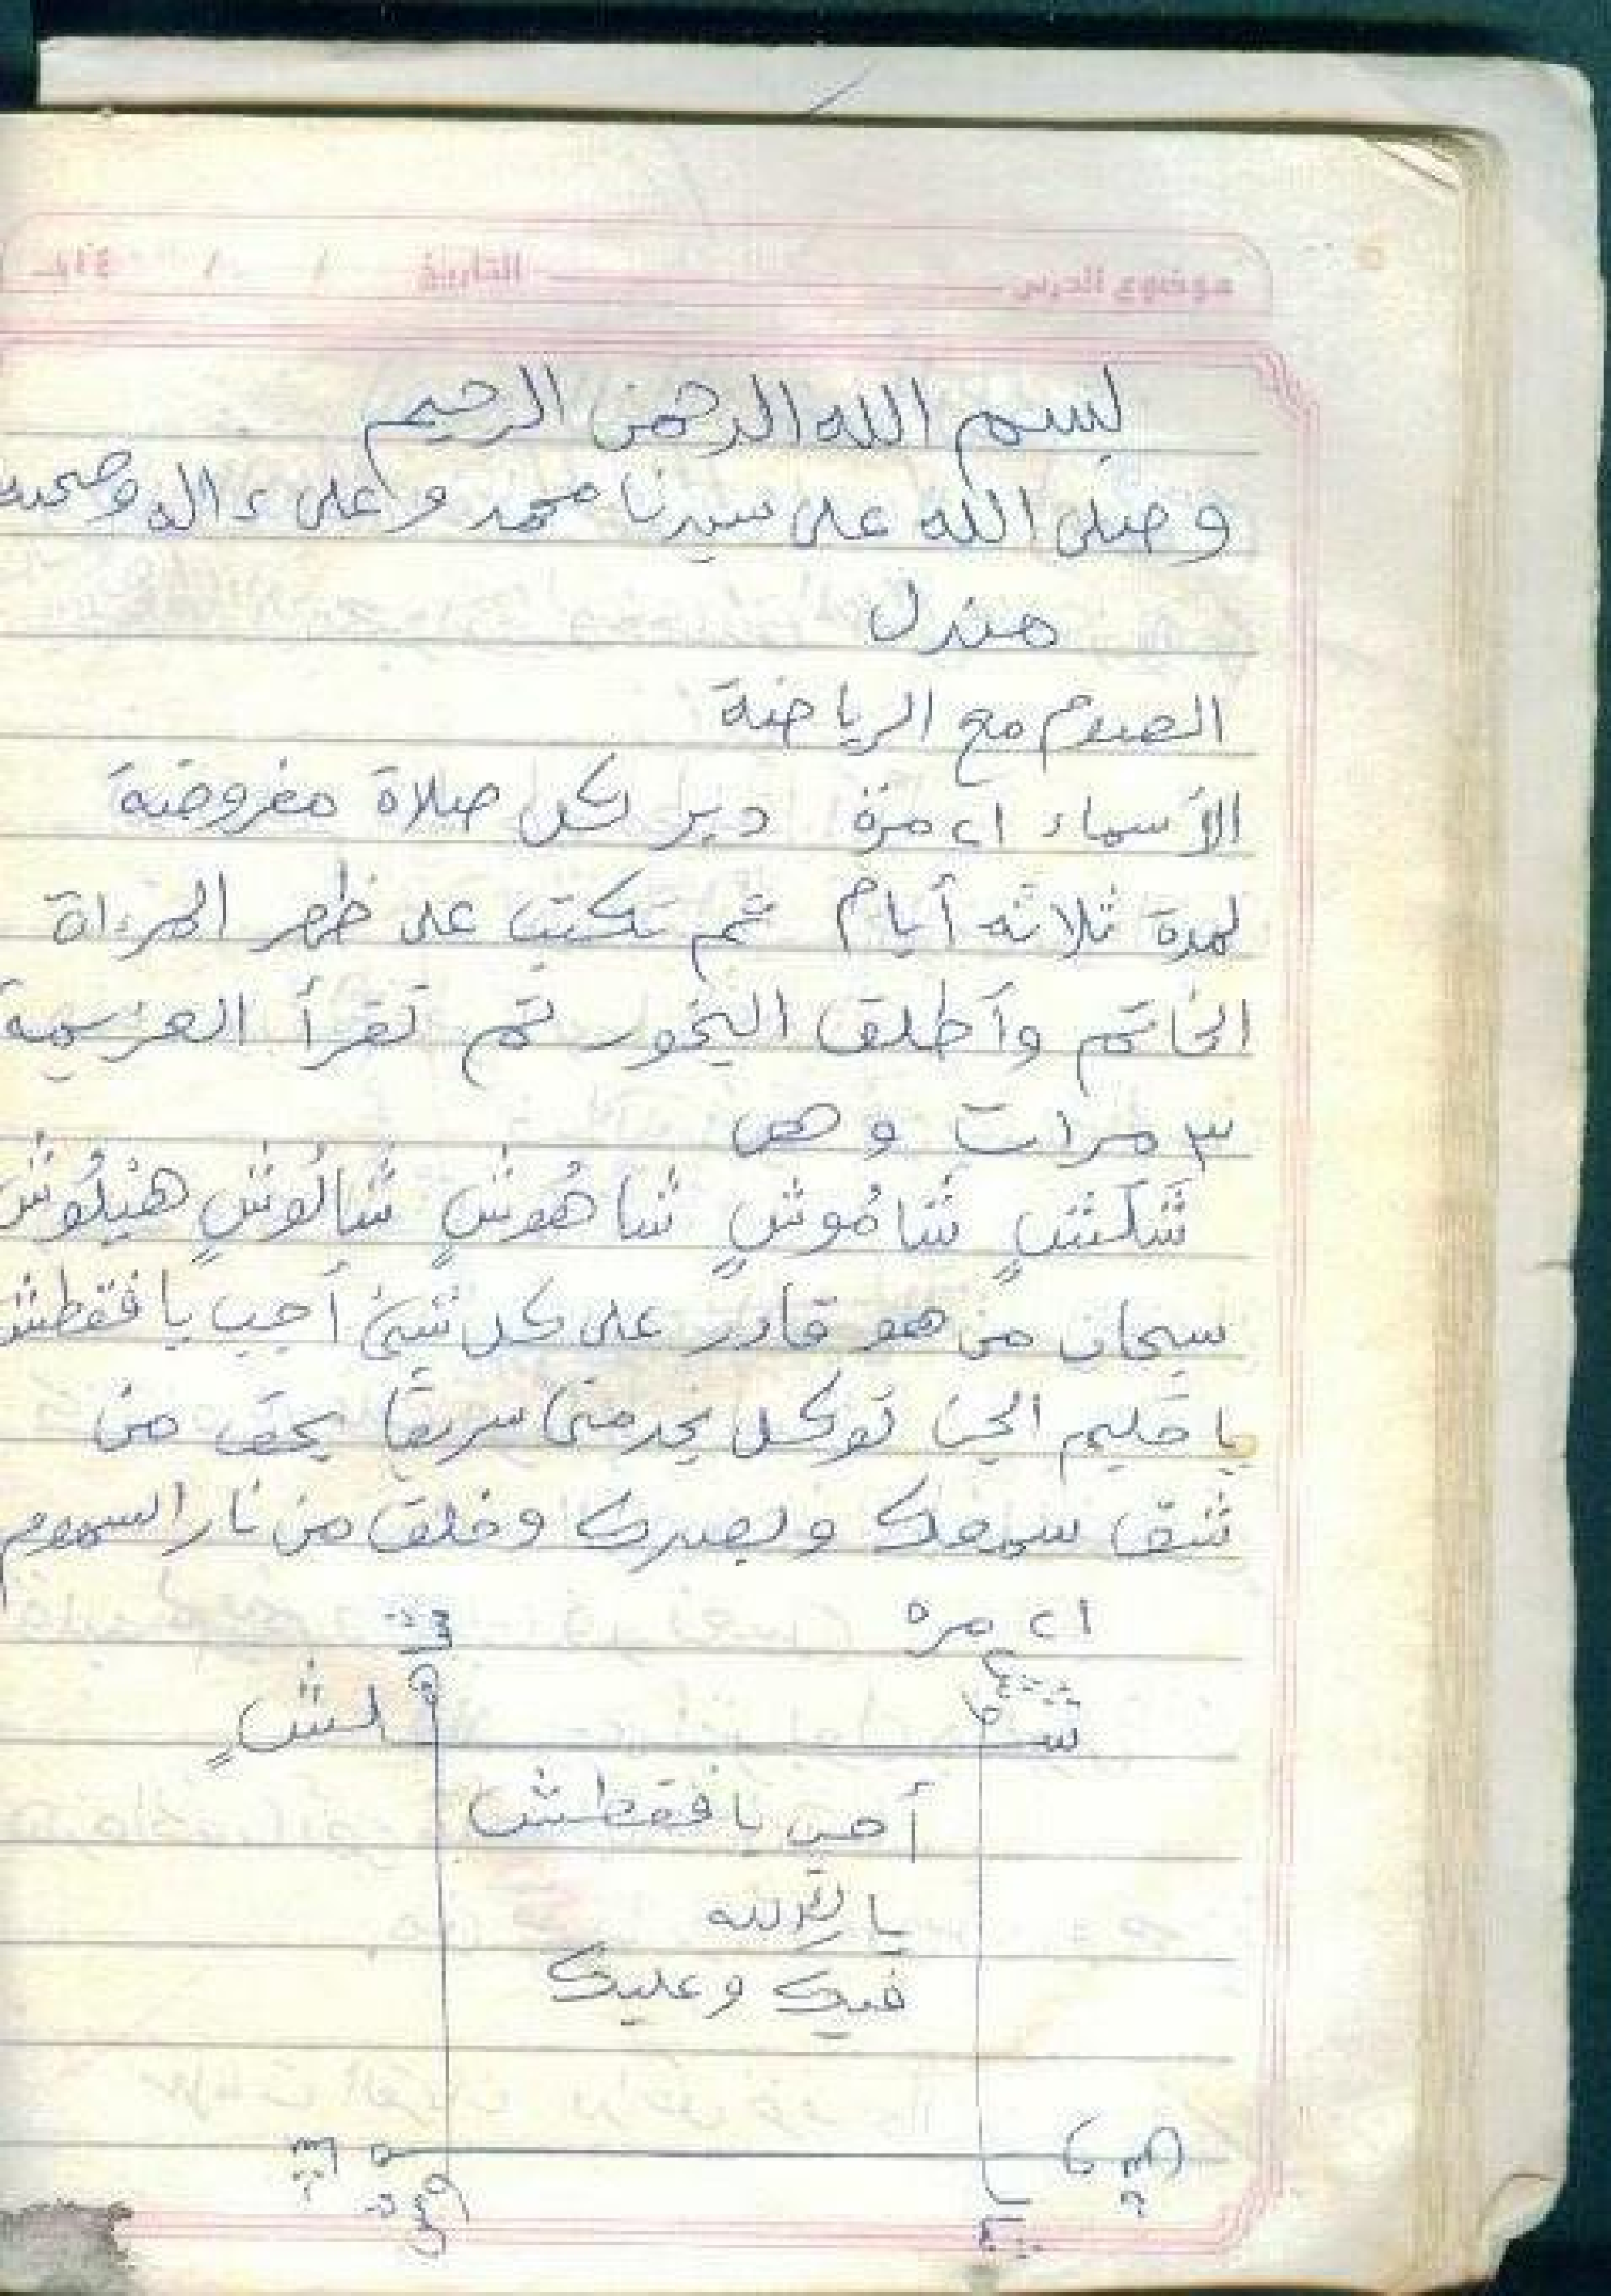 موضوع الدرس التاريخ / / ١٤هـ
بسم الله الرحمن الرحيم
وصلى الله على سيدنا محمد وعلى ءاله وصحبه
مندل
الصوم مع الرياضة
الأسماء ٢١ مرة دبر كل صلاة مفروضة
لمدة ثلاثة أيام ثم تكتب على ظهر المرءاة
الخاتم وأطلق البخور ثم تقرأ العزيمة
٣ مرات وهي
شَلَشٍ شَامُوشٍ شاهُوشٍ شَالُوشٍ هَيْلُوشٍ
سبحان من هو قادر على كل شيئ أجب يا فقطش
يا حليم الجن توكل بخدمتي سريعا بحق من
شق سمعك وبصرك وخلق من نار السموم
٢١ مرة
لشٍ
أجب يا فقطش
فيك وعليك